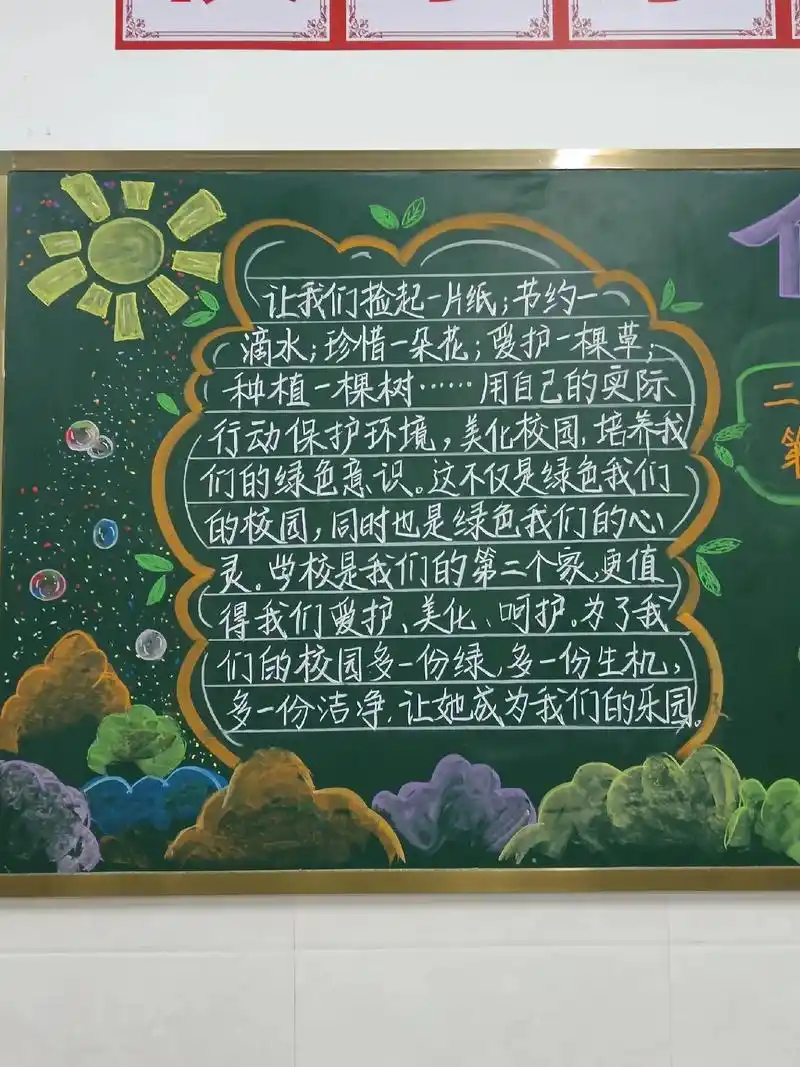 让我们捡起一片纸;节约一
滴水;珍惜一朵花;爱护一棵草;
种植一棵树……用自己的实际
行动保护环境,美化校园,培养我
们的绿色意识。这不仅是绿色我们
的校园,同时也是绿色我们的心
灵。学校是我们的第二个家,更值
得我们爱护、美化、呵护。为了我
们的校园多一份绿,多一份生机,
多一份洁净,让她成为我们的乐园。
二
第